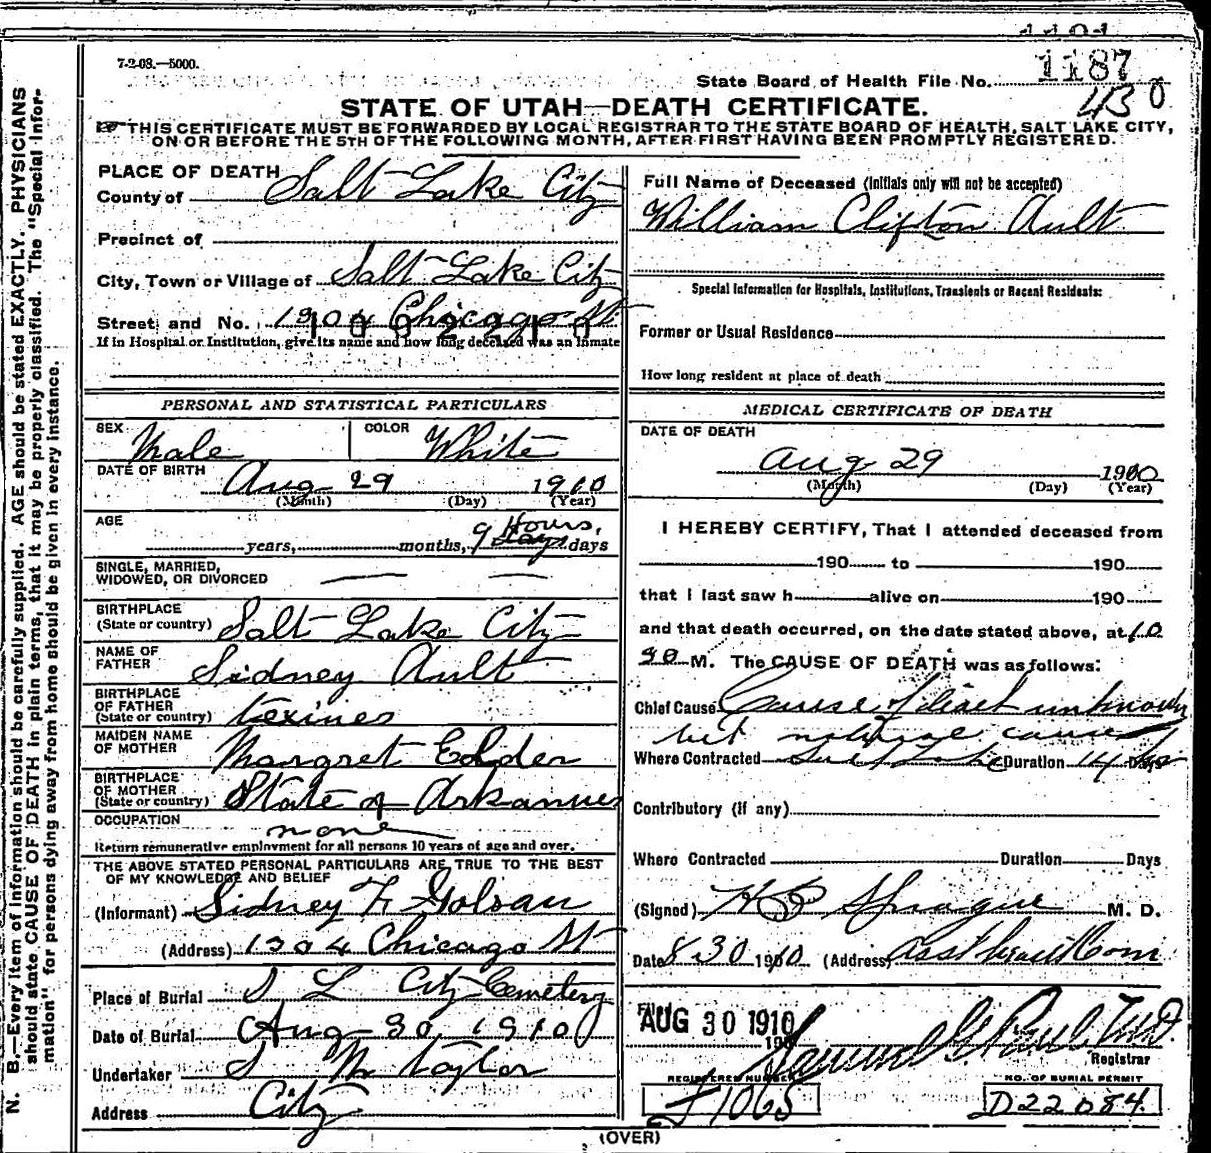 7-2-08.—5000.
State Board of Health File No. 1187
430
STATE OF UTAH—DEATH CERTIFICATE.
THIS CERTIFICATE MUST BE FORWARDED BY LOCAL REGISTRAR TO THE STATE BOARD OF HEALTH, SALT LAKE CITY,
ON OR BEFORE THE 5TH OF THE FOLLOWING MONTH, AFTER FIRST HAVING BEEN PROMPTLY REGISTERED.
N. B.—Every item of information should be carefully supplied. AGE should be stated EXACTLY. PHYSICIANS
should state CAUSE OF DEATH in plain terms, that it may be properly classified. The "Special Infor-
mation" for persons dying away from home should be given in every instance.
PLACE OF DEATH
County of Salt Lake City
Precinct of
City, Town or Village of Salt Lake City
Street and No. 1904 Chicago St
If in Hospital or Institution, give its name and how long deceased was an inmate
PERSONAL AND STATISTICAL PARTICULARS
SEX Male COLOR White
DATE OF BIRTH Aug 29 1910
(Month) (Day) (Year)
AGE years, months, 9 Hours. days
SINGLE, MARRIED,
WIDOWED, OR DIVORCED
BIRTHPLACE
(State or country) Salt Lake City
NAME OF
FATHER Sidney Ault
BIRTHPLACE
OF FATHER
(State or country)
MAIDEN NAME
OF MOTHER Margret Edder
BIRTHPLACE
OF MOTHER
(State or country) State of Arkansas
OCCUPATION none
Return remunerative employment for all persons 10 years of age and over.
THE ABOVE STATED PERSONAL PARTICULARS ARE TRUE TO THE BEST
OF MY KNOWLEDGE AND BELIEF
(Informant) Sidney F. Golsan
(Address) 1304 Chicago St
Place of Burial S L City Cemetery
Date of Burial Aug 30 1910
Undertaker S M Taylor
Address City
Full Name of Deceased (Initials only will not be accepted)
William Clifton Ault
Special Information for Hospitals, Institutions, Transients or Recent Residents:
Former or Usual Residence
How long resident at place of death
MEDICAL CERTIFICATE OF DEATH
DATE OF DEATH
Aug 29 1910
(Month) (Day) (Year)
I HEREBY CERTIFY, That I attended deceased from
190 to 190
that I last saw h alive on 190
and that death occurred, on the date stated above, at 10
30 M. The CAUSE OF DEATH was as follows:
Chief Cause Cause of death unknown
but natural causes
Where Contracted Salt Lake Duration 14 Days
Contributory (if any)
Where Contracted Duration Days
(Signed) H B Sprague M. D.
Date 8 30 1910 (Address)
AUG 30 1910
190
Samuel G Paul M.D.
Registrar
REGISTERED NUMBER
J 1065
NO. OF BURIAL PERMIT
D22084
(OVER)